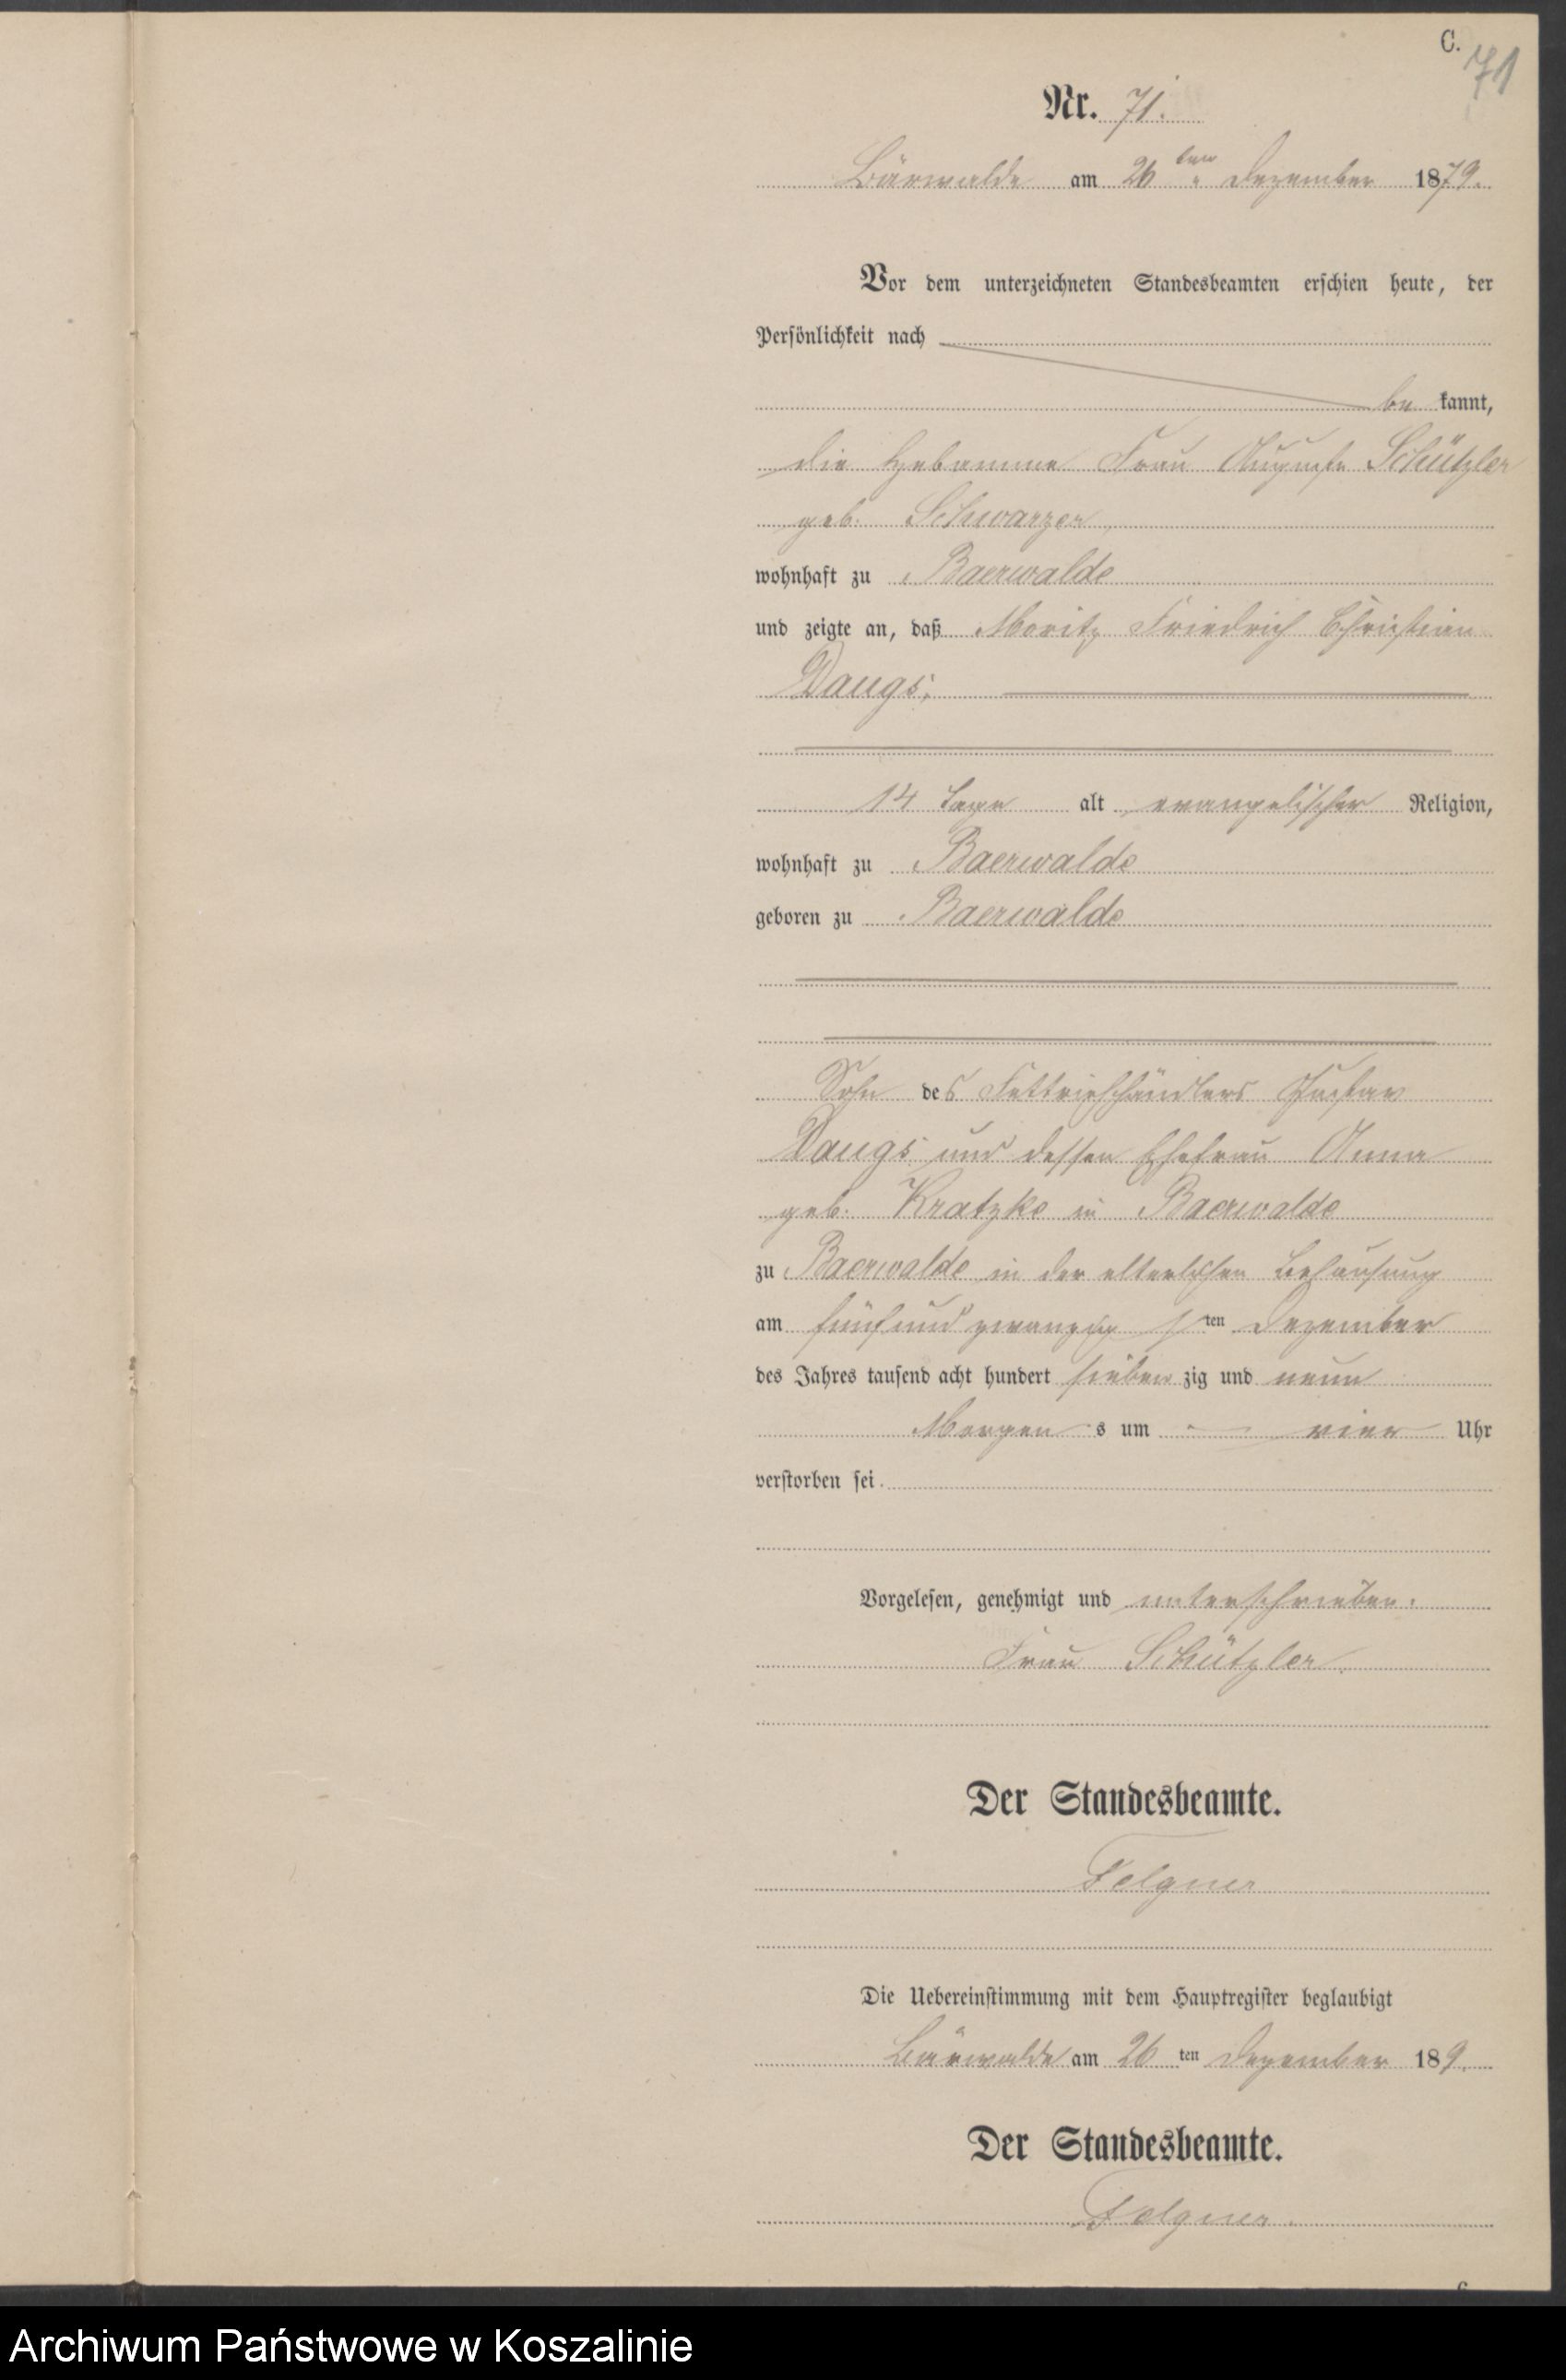 C.
71
Nr. 71.
Bärwalde am 26ten Dezember 1879.
Vor dem unterzeichneten Standesbeamten erschien heute, der
Persönlichkeit nach
be kannt,
die Hebamme Frau Auguste Schützler
geb. Schwarzer,
wohnhaft zu Baerwalde
und zeigte an, daß Moritz Friedrich Christian
Daugs,
14 Tage alt evangelischer Religion,
wohnhaft zu Baerwalde
geboren zu Baerwalde
Sohn des Fettviehhändlers Gustav
Daugs und dessen Ehefrau Anna
geb. Kratzke in Baerwalde
zu Baerwalde in der elterlichen Behausung
am fünfundzwanzig sten Dezember
des Jahres tausend acht hundert sieben zig und neun
Morgen s um vier Uhr
verstorben sei.
Vorgelesen, genehmigt und unterschrieben.
Frau Schützler.
Der Standesbeamte.
Felgner
Die Uebereinstimmung mit dem Hauptregister beglaubigt
Bärwalde am 26 ten Dezember 189.
Der Standesbeamte.
Felgner.
Archiwum Państwowe w Koszalinie